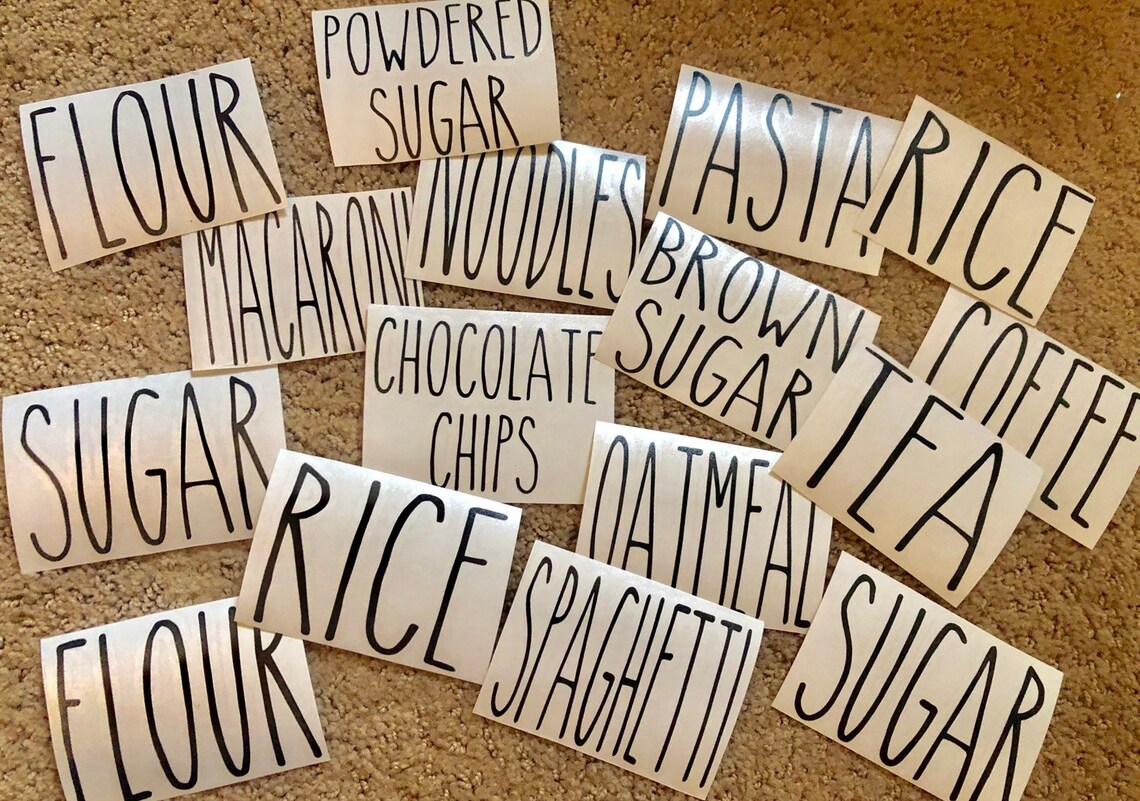 POWDERED
SUGAR
FLOUR
PASTA
RICE
NOODLES
MACARONI
BROWN
SUGAR
COFFEE
CHOCOLATE
CHIPS
TEA
SUGAR
OATMEAL
RICE
SPAGHETTI
SUGAR
FLOUR